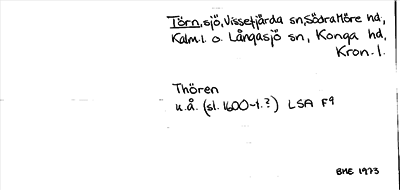 Törn, sjö, Vissefjärda sn, Södra Möre hd,
Kalm. l. o. Långasjö sn, Konga hd,
Kron. l.
Thören
u.å. (sl. 1600-t.?) LSA F9
BME 1973